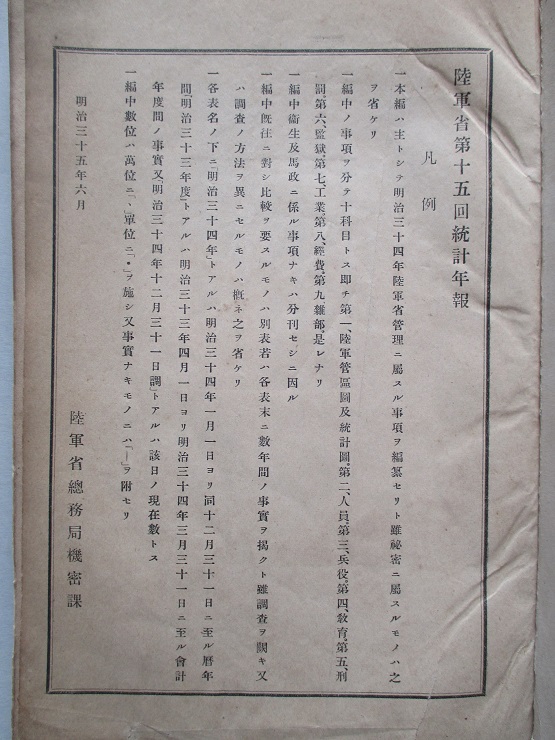 陸軍省第十五回統計年報
凡例
一本編ハ主トシテ明治三十四年陸軍省管理ニ屬スル事項ヲ編纂セリト雖祕密ニ屬スルモノハ之
ヲ省ケリ
一編中ノ事項ヲ分テ十科目トス即チ第一、陸軍管區圖及統計圖。第二、人員。第三、兵役。第四、敎育。第五、刑
罰。第六、監獄。第七、工業。第八、經費。第九雜部。是レナリ
一編中衞生及馬政ニ係ル事項ナキハ分刊セシニ因ル
一編中旣往ニ對シ比較ヲ要スルモノハ別表若ハ各表末ニ數年間ノ事實ヲ揭クト雖調査ヲ闕キ又
ハ調査ノ方法ヲ異ニセルモノハ槪ネ之ヲ省ケリ
一各表名ノ下ニ「明治三十四年」トアルハ明治三十四年一月一日ヨリ同十二月三十一日ニ至ル曆年
間「明治三十三年度」トアルハ明治三十三年四月一日ヨリ明治三十四年三月三十一日ニ至ル會計
年度間ノ事實又明治三十四年十二月三十一日調」トアルハ該日ノ現在數トス
一編中數位ハ萬位ニ「、」單位ニ「•」ヲ施シ又事實ナキモノニハ「—」ヲ附セリ
明治三十五年六月
陸軍省總務局機密課